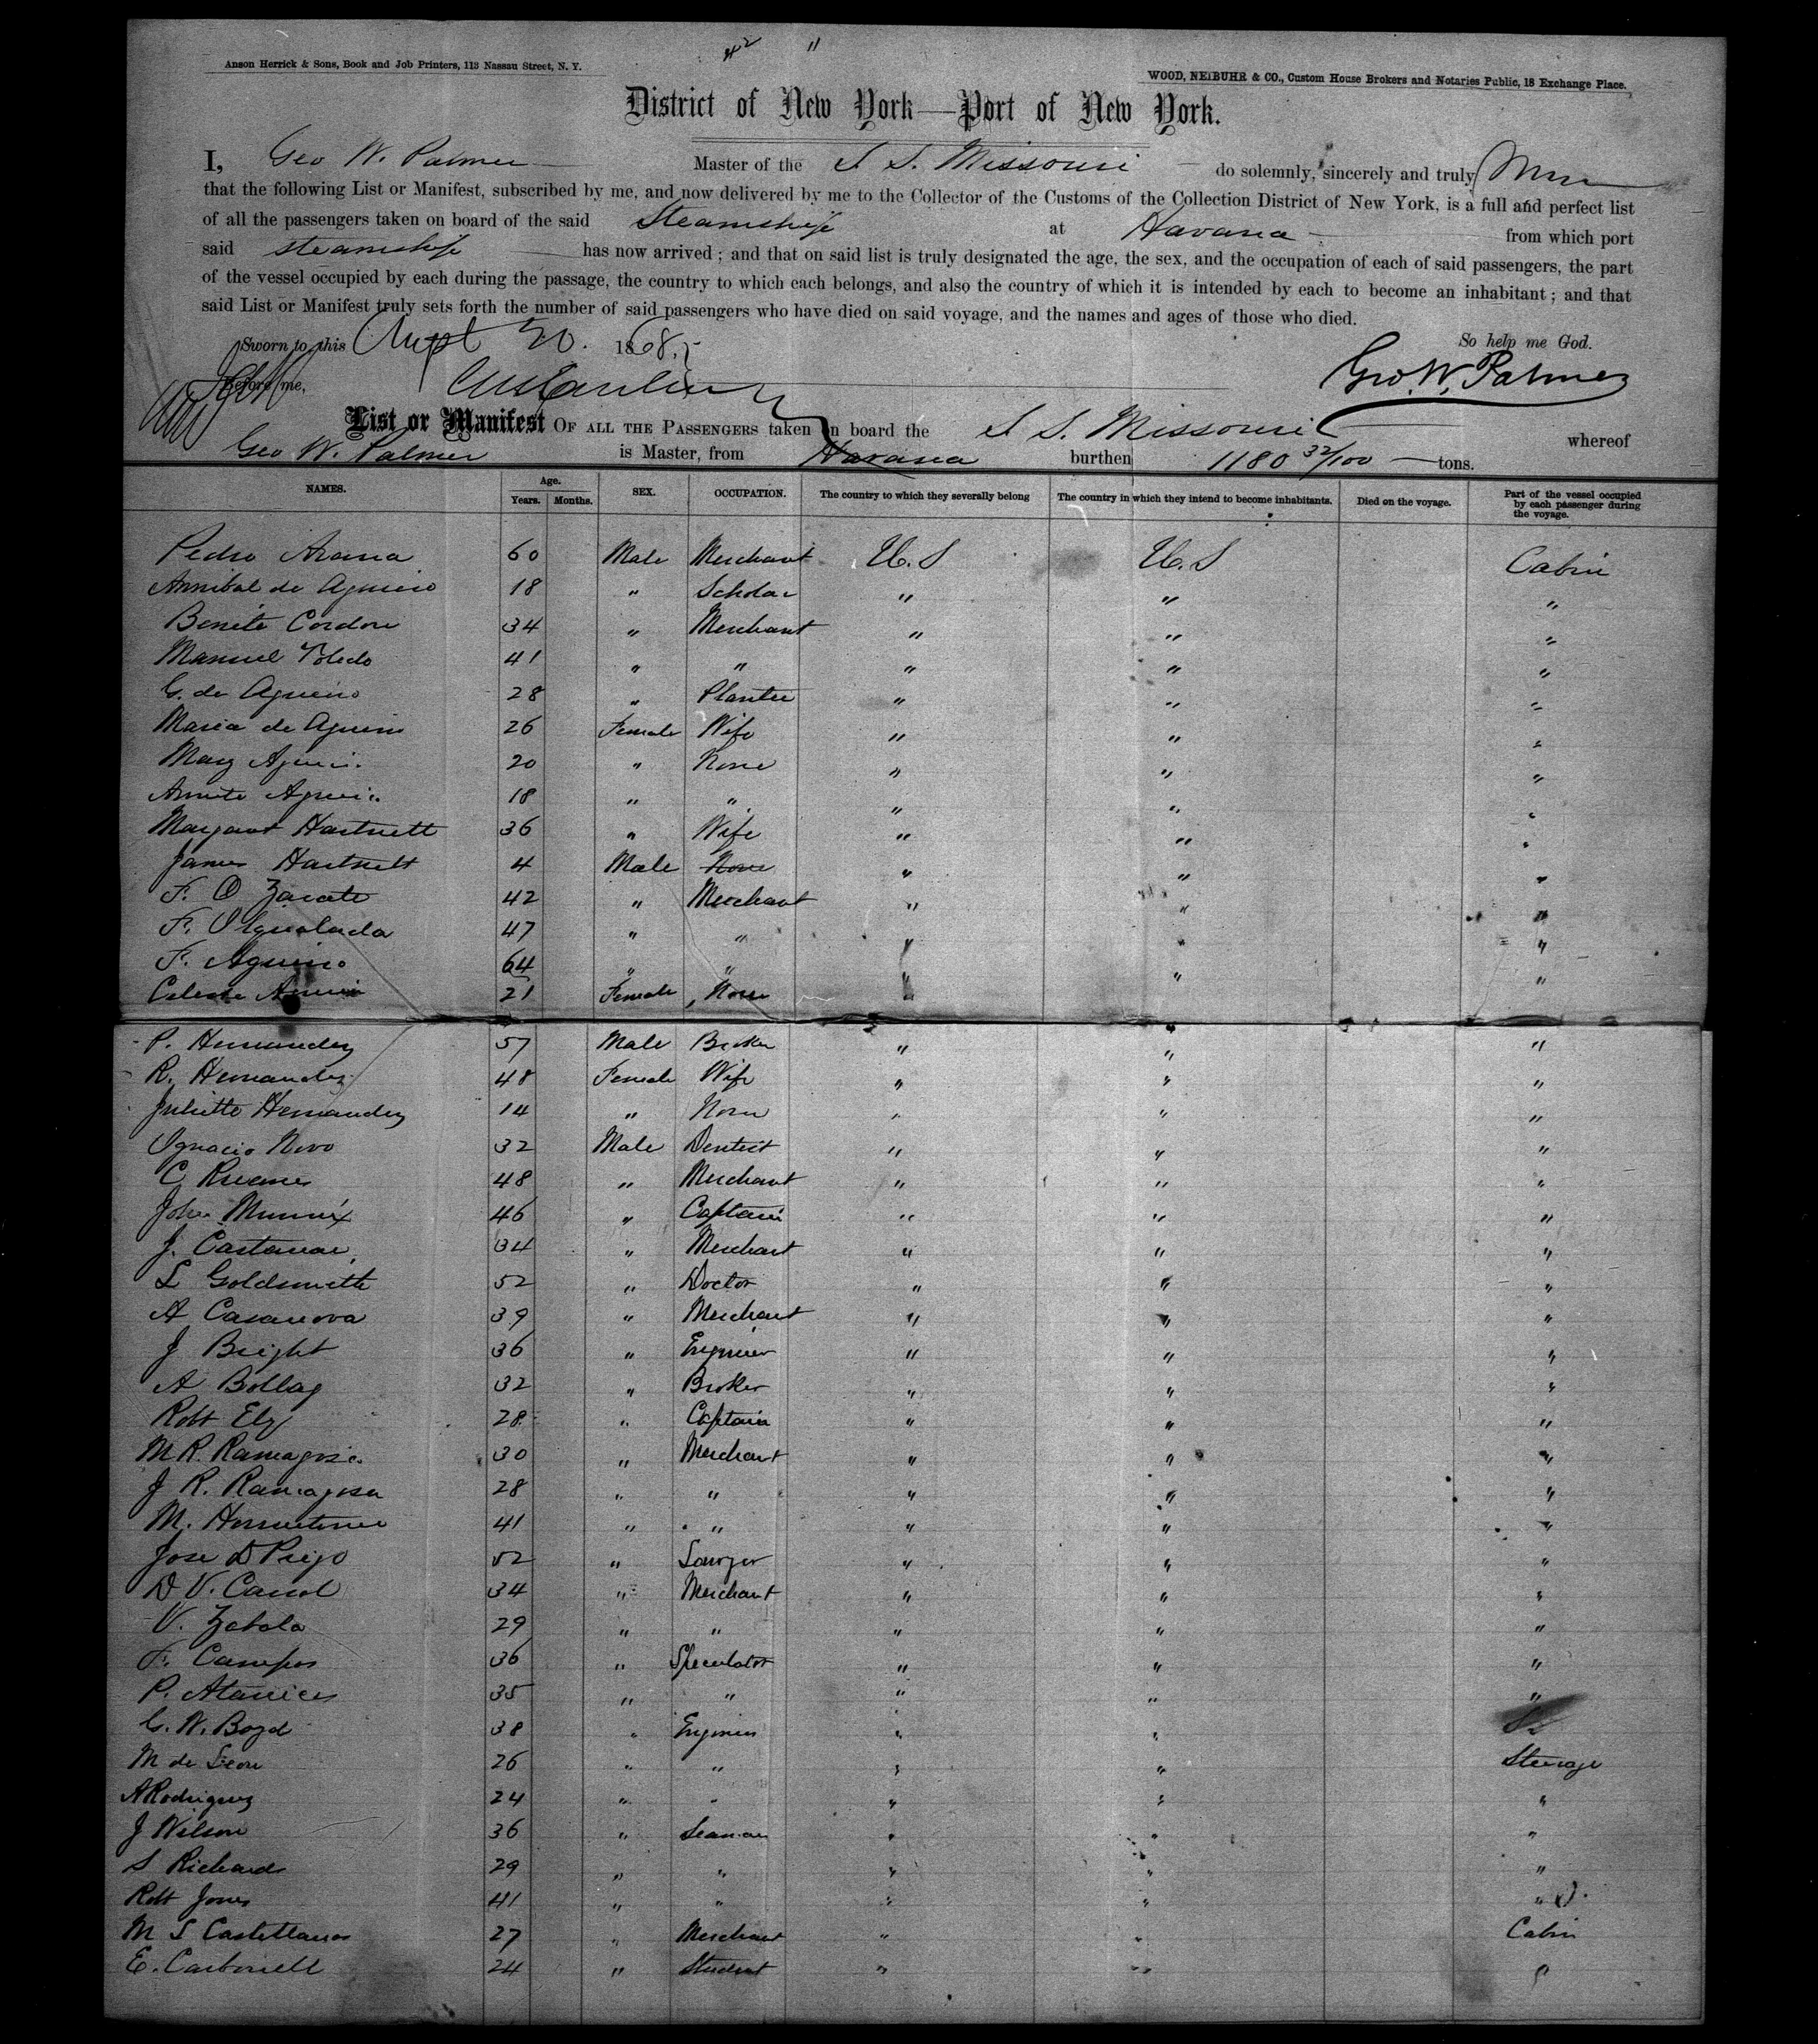 Anson Herrick & Sons, Book and Job Printers, 113 Nassau Street, N. Y.
WOOD, NEIBUHR & CO., Custom House Brokers and Notaries Public, 18 Exchange Place.
District of New York—Port of New York.
I, Geo W. Palmer Master of the S S. Missouri do solemnly, sincerely and truly
that the following List or Manifest, subscribed by me, and now delivered by me to the Collector of the Customs of the Collection District of New York, is a full and perfect list
of all the passengers taken on board of the said Steamship at Havana from which port
said steamship has now arrived ; and that on said list is truly designated the age, the sex, and the occupation of each of said passengers, the part
of the vessel occupied by each during the passage, the country to which each belongs, and also the country of which it is intended by each to become an inhabitant ; and that
said List or Manifest truly sets forth the number of said passengers who have died on said voyage, and the names and ages of those who died.
Sworn to, this 20. 1868. So help me God.
Before me, Geo. W. Palmer
List or Manifest OF ALL THE PASSENGERS taken on board the S S. Missouri whereof
Geo W. Palmer is Master, from Havana burthen 1180 32/100 tons.
NAMES. Age. Years. Months. SEX. OCCUPATION. The country to which they severally belong The country in which they intend to become inhabitants. Died on the voyage. Part of the vessel occupied by each passenger during the voyage.
Pedro Arana 60 Male Merchant U. S U. S Cabin
Annibal de Aguero 18 " Scholar " " "
Benito Cordon 34 " Merchant " " "
Manuel Toledo 41 " " " " "
G. de Aguero 28 " Planter " " "
Maria de Aguero 26 Female Wife " " "
Mary 20 " None " " "
18 " " " " "
Margaret Hartnett 36 " Wife " " "
James Hartnett 4 Male None " " "
F. O Zarate 42 " Merchant " " "
F. 47 " " " " "
F. Aguero 64 " " " " "
Celeste 21 Female None " "
P. Hernandez 57 Male Broker " " "
R. Hernandez 48 Female Wife " " "
Juliette Hernandez 14 " None " " "
Ignacio Novo 32 Male Dentist " " "
C 48 " Merchant " " "
John 46 " Captain " " "
J. 34 " Merchant " " "
L Goldsmith 52 " Doctor " " "
A Casanova 39 " Merchant " " "
J Bright 36 " Engineer " " "
A Bollag 32 " Broker " " "
Robt Ely 28 " Captain " " "
M R. Ramagosa 30 " Merchant " " "
J R. Ramagosa 28 " " " " "
M. 41 " " " " "
Jose D Priejo 52 " Lawyer " " "
D V. 34 " Merchant " " "
V. Zabala 29 " " " " "
F. Campos 36 " Speculator " " "
P. 35 " " " " "
G. W. Boyd 38 " Engineer " "
M de Leon 26 " " " " Steerage
A Rodriguez 24 " " " " "
J Wilson 36 " Seaman " " "
S Richards 29 " " " " "
Robt Jones 41 " " " " "
M S Castellanos 27 " Merchant " " Cabin
E. Carbonell 24 " Student " " "